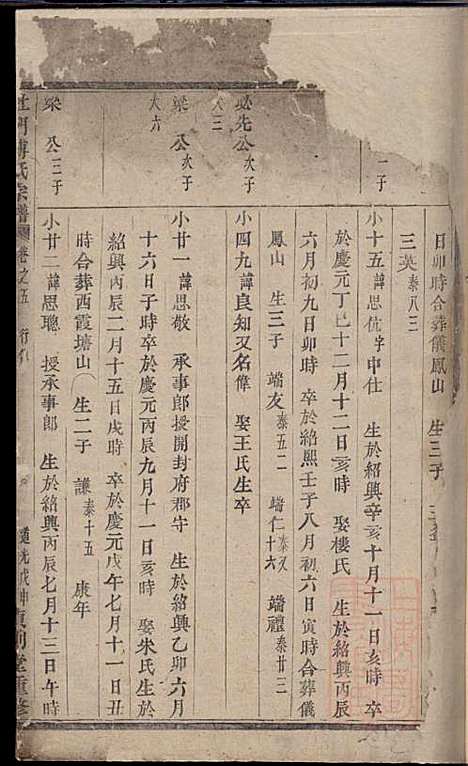 日卯時合葬儀鳳山　生三子
三英泰八三
一子
小十五諱思伉字中仕　生於紹興辛亥十月十一日亥時　卒
於慶元丁巳十二月十二日亥時　娶樓氏　生於紹興丙辰
六月初九日卯時　卒於紹熙壬子八月初六日寅時合葬儀
鳳山　生三子　端友泰五二　端仁泰又十六　端禮泰廿三
必先公次子
大三
小四九諱良知又名偉　娶王氏生卒
梁公次子
小廿一諱思敬　承事郎授開封府郡守　生於紹興乙卯六月
大六
十六日子時卒於慶元丙辰九月十一日亥時　娶朱氏生於
紹興丙辰二月十五日戌時　卒於慶元戊午七月十一日丑
時合葬西霞塘山　生二子　謙泰十五　康年
梁公三子
小廿二諱思聰　授承事郎　生於紹興丙辰七月十三日午時
門傅氏宗譜　卷之五　行
道光戊申貞刊堂重修